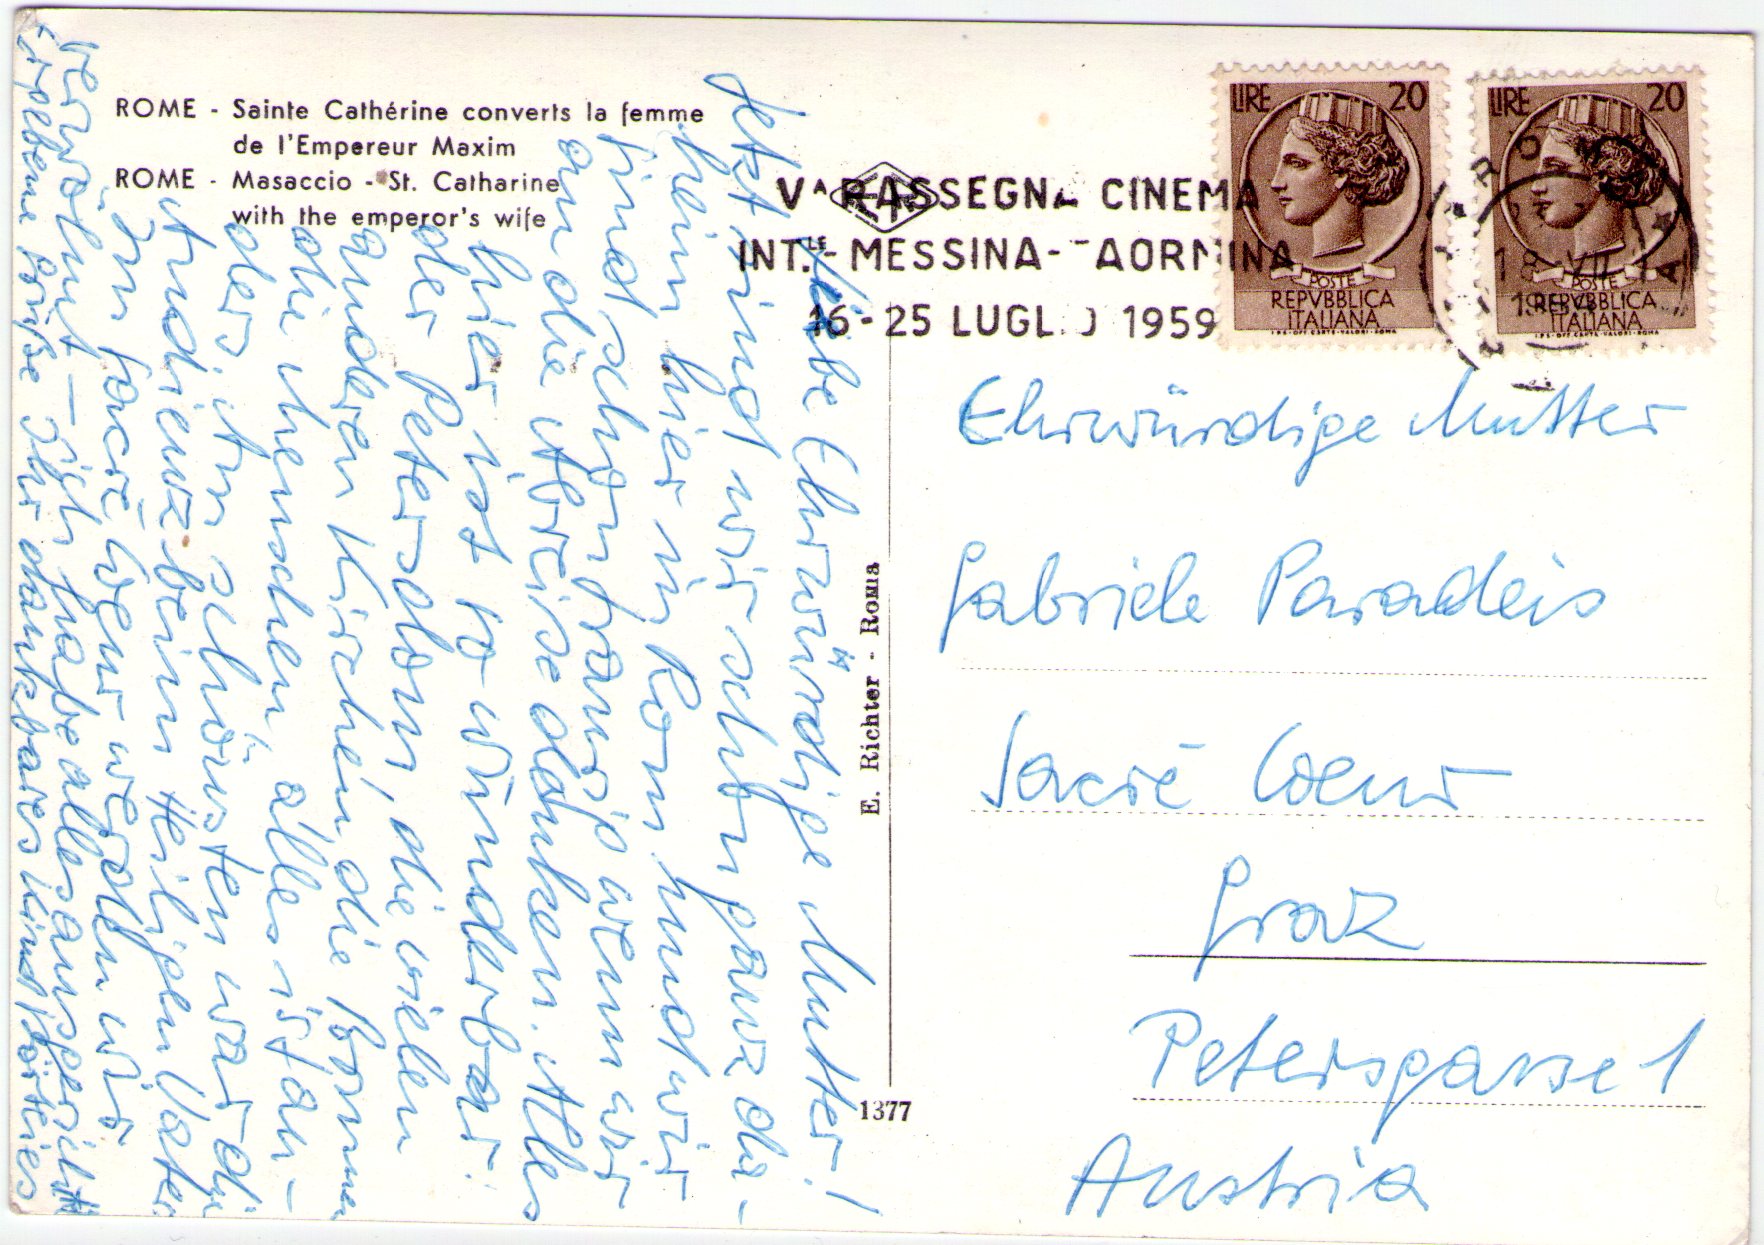 ROME - Sainte Cathérine converts la femme
de l'Empereur Maxim
ROME - Masaccio - St. Catharine
with the emperor's wife
Vᴬ RASSEGNA CINEMA
INT.ᴸᴱ - MESSINA - TAORMINA
16-25 LUGLIO 1959
LIRE 20
POSTE
REPVBBLICA
ITALIANA
LIRE 20
POSTE
REPVBBLICA
ITALIANA
18 VII
Liebe Ehrwürdige Mutter!
Jetzt sind wir schon ganz da-
heim hier in Rom und wir
sind schon traurig wenn wir
an die Abreise denken. Alles
hier ist so wunderbar:
der Petersdom, die vielen
anderen Kirchen, die
die Menschen, alles ist an-
ders; am schönsten war die
Audienz beim Heiligen Vater.
Im Sacré Coeur werden wir
verwöhnt – ich habe alles ausgerichtet
Ergebene Grüße Ihr dankbares Kind
E. Richter - Roma
1377
Ehrwürdige Mutter
Gabriele Paradeis
Sacré Coeur
Graz
Petersgasse 1
Austria